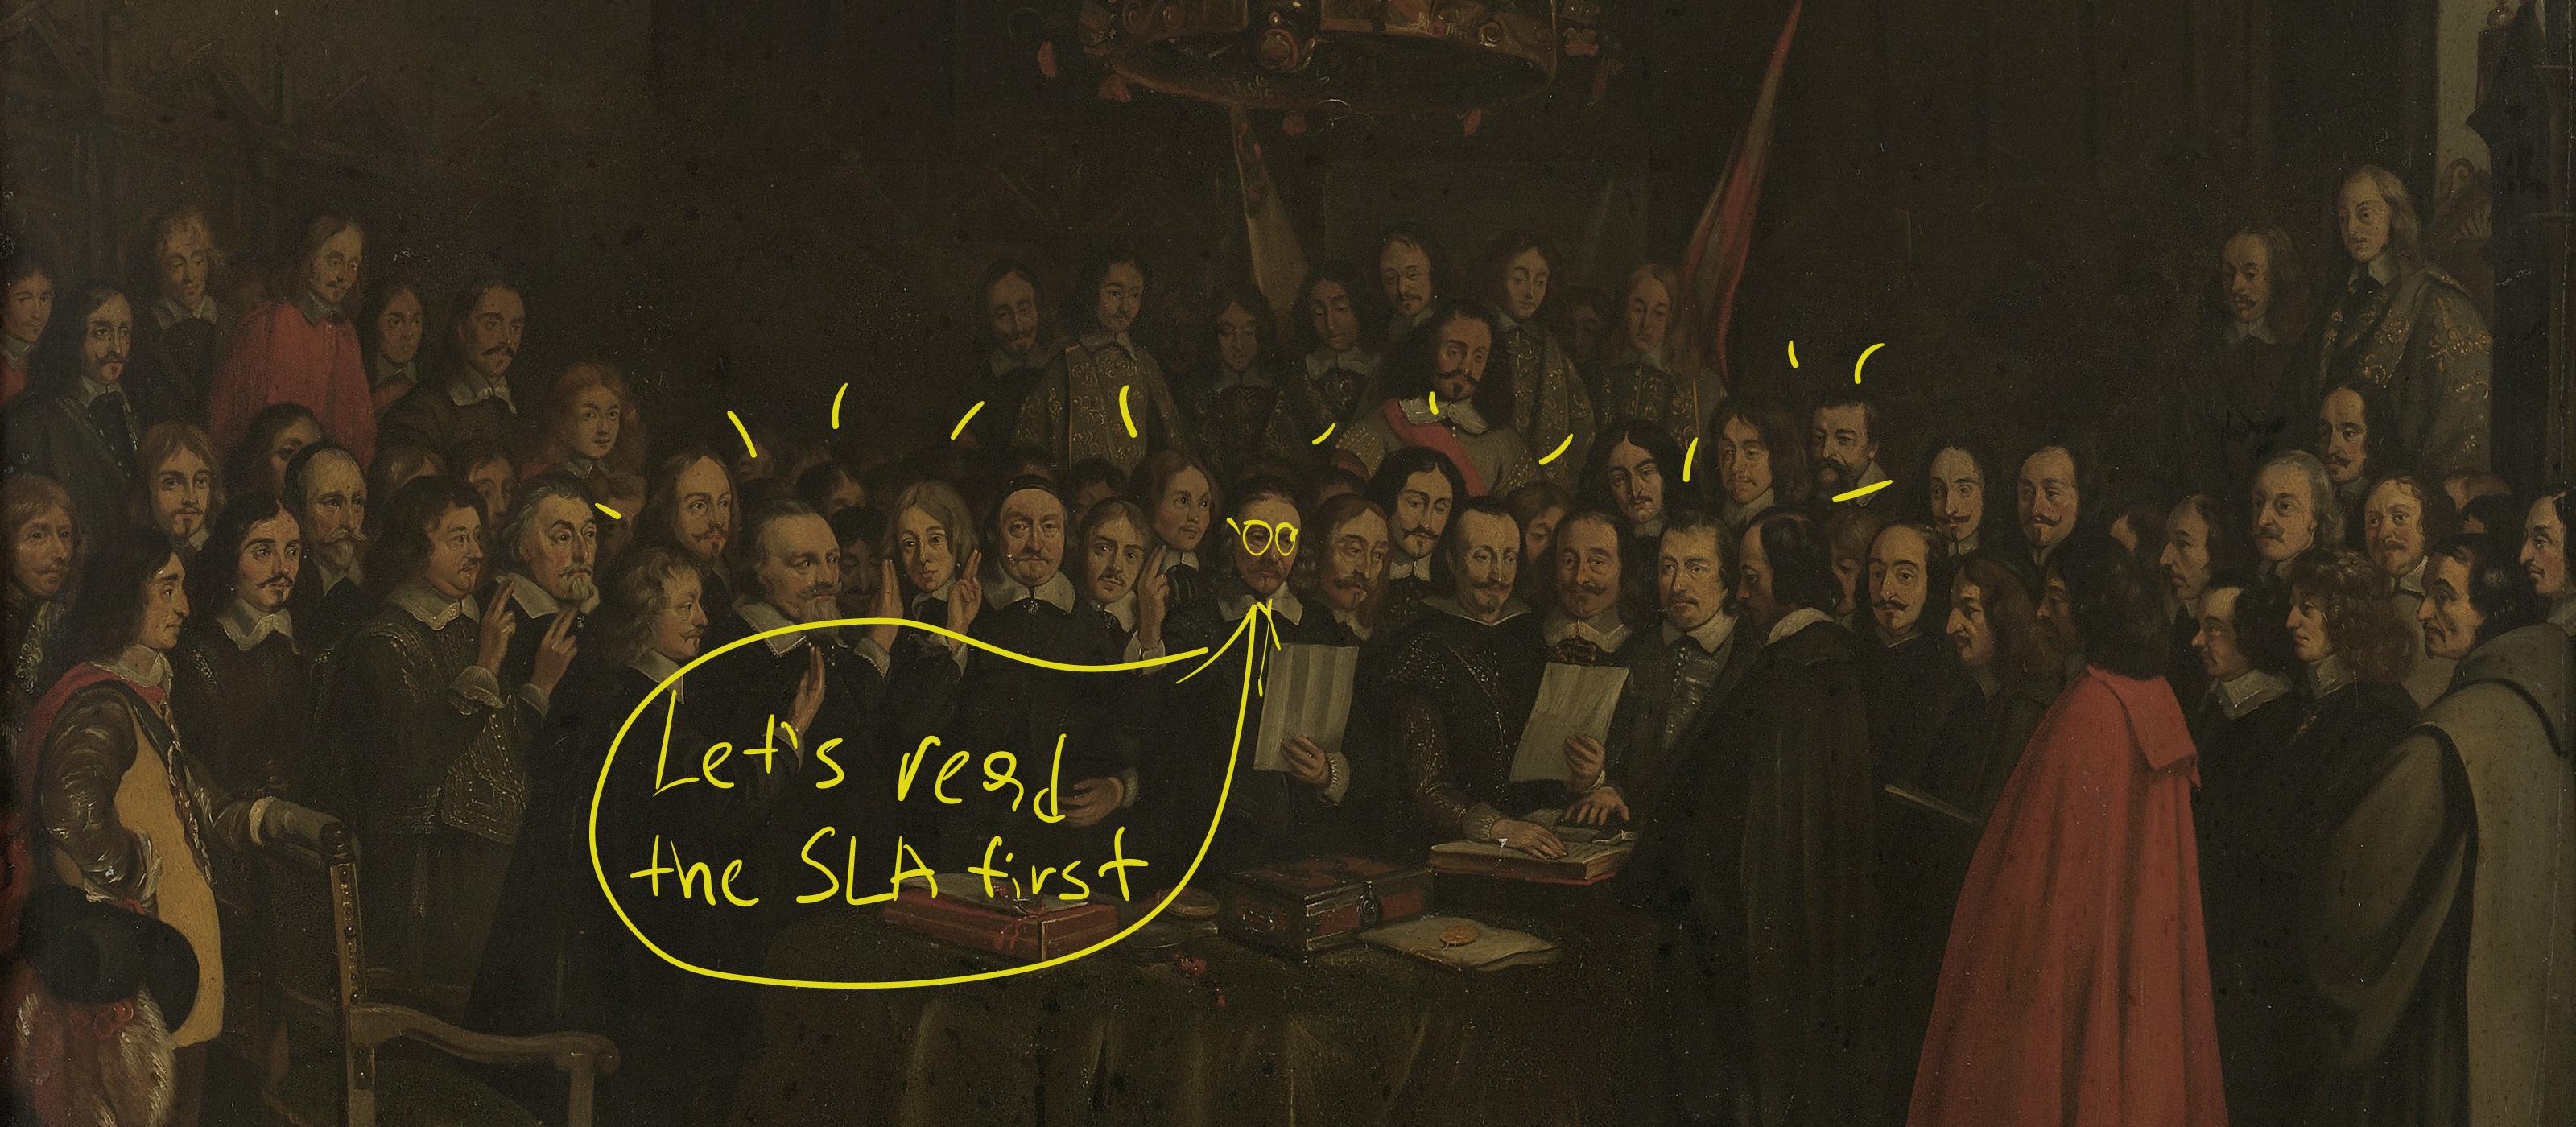 Let's read
the SLA first